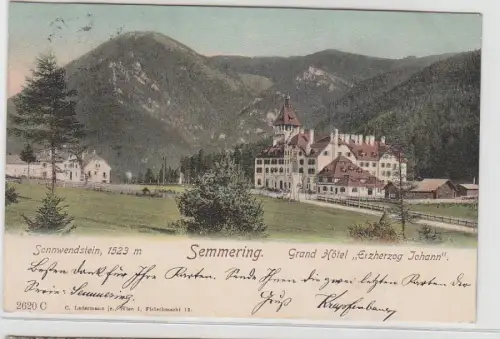 Sonnwendstein, 1523 m Semmering. Grand Hôtel „Erzherzog Johann".
Besten Dank für Ihre Karten. Sende Ihnen die zwei letzten Karten der
Serie: Semmering. Gruß
2620 C C. Ledermann jr., Wien I, Fleischmarkt 12.